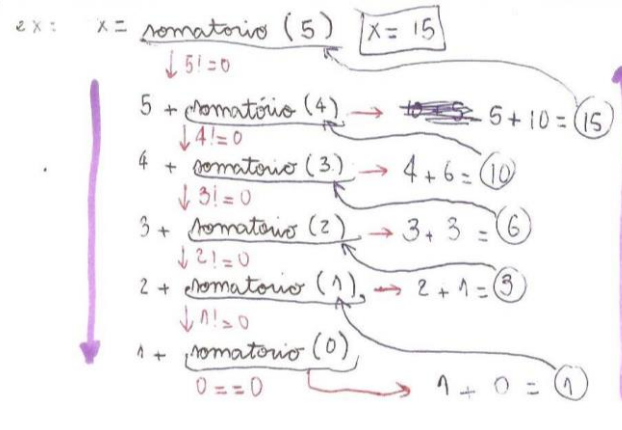 ex: x = somatorio (5) x = 15
↓ 5! = 0
5 + somatório (4) → 5 + 10 = 15
↓ 4! = 0
4 + somatório (3) → 4 + 6 = 10
↓ 3! = 0
3 + somatorio (2) → 3 + 3 = 6
↓ 2! = 0
2 + somatorio (1) → 2 + 1 = 3
↓ 1! = 0
1 + somatorio (0)
0 == 0 → 1 + 0 = 1